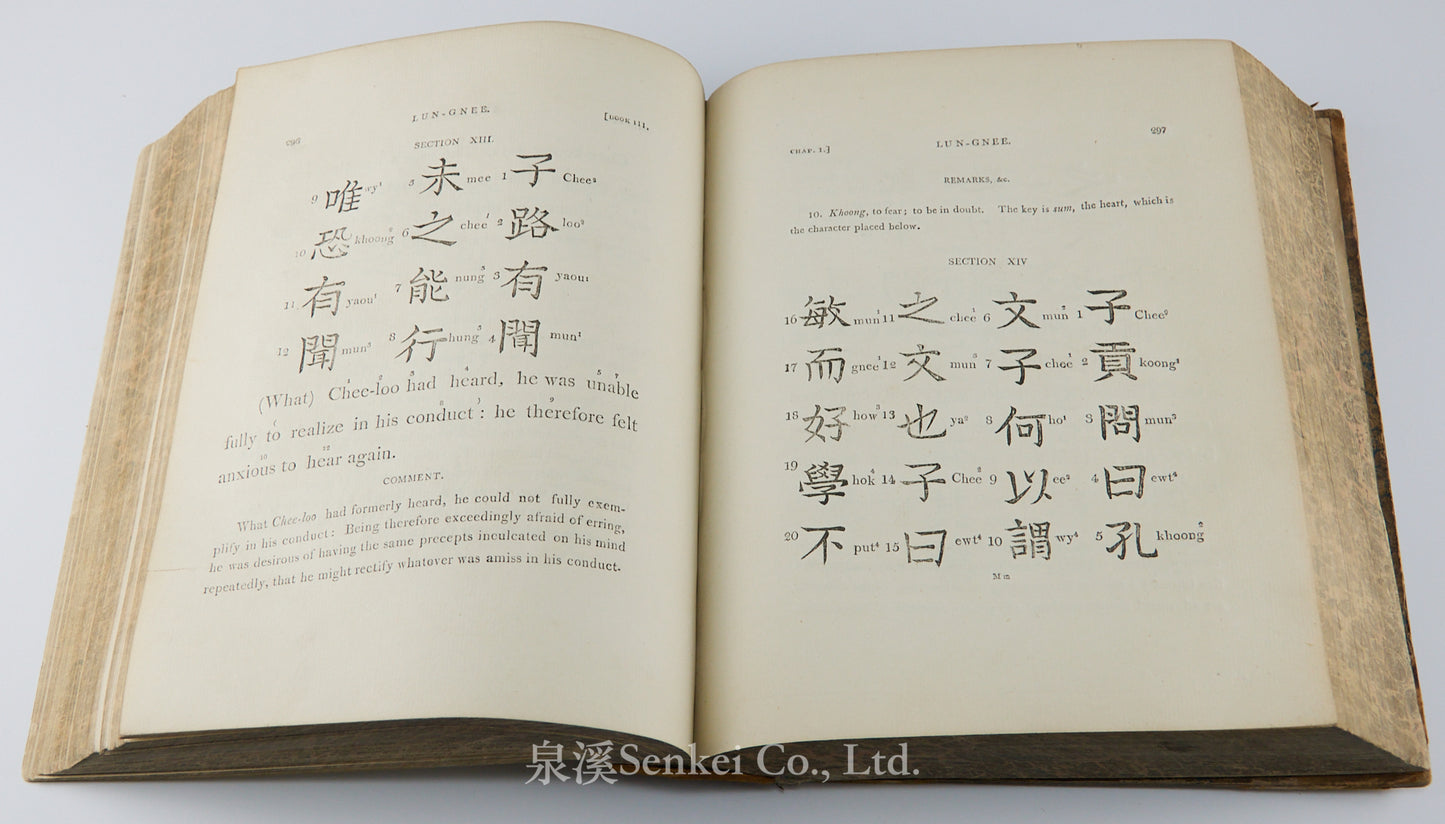 296
LUN-GNEE.
[BOOK III.
SECTION XIII.
1 子 Chee² 2 路 loo² 3 有 yaou¹ 4 聞 mun¹
5 未 mee 6 之 chee¹ 7 能 nung⁵ 8 行 hung⁵
9 唯 wy¹ 10 恐 khoong² 11 有 yaou¹ 12 聞 mun³
(What) Chee-loo had heard, he was unable
fully to realize in his conduct: he therefore felt
anxious to hear again.
COMMENT.
What Chee-loo had formerly heard, he could not fully exem-
plify in his conduct: Being therefore exceedingly afraid of erring,
he was desirous of having the same precepts inculcated on his mind
repeatedly, that he might rectify whatever was amiss in his conduct.
CHAP. I.]
LUN-GNEE.
297
REMARKS, &c.
10. Khoong, to fear; to be in doubt. The key is sum, the heart, which is
the character placed below.
SECTION XIV
1 子 Chee² 2 貢 koong¹ 3 問 mun³ 4 曰 ewt⁴ 5 孔 khoong²
6 文 mun⁵ 7 子 chee² 8 何 ho¹ 9 以 ee² 10 謂 wy⁴
11 之 chee¹ 12 文 mun⁵ 13 也 ya² 14 子 Chee² 15 曰 ewt⁴
16 敏 mun² 17 而 gnee¹ 18 好 how³ 19 學 hok⁴ 20 不 put⁴
M m
泉溪Senkei Co., Ltd.